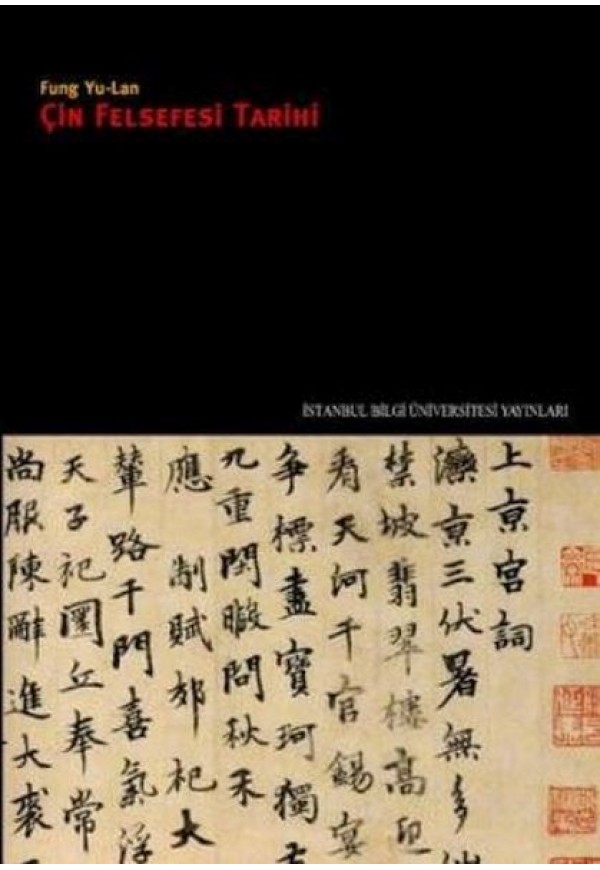 Fung Yu-Lan
ÇİN FELSEFESİ TARİHİ
İSTANBUL BİLGİ ÜNİVERSİTESİ YAYINLARI
上亰宮詞
灤亰三伏暑無多
禁坡翡翠樓高迎
看天河千官錫宴
争標盡寶珂獨
九重閒暇問秋禾
應制賦郊祀大
輦路千門喜氣浮
天子祀圜丘奉常
尚服陳辭進大裘